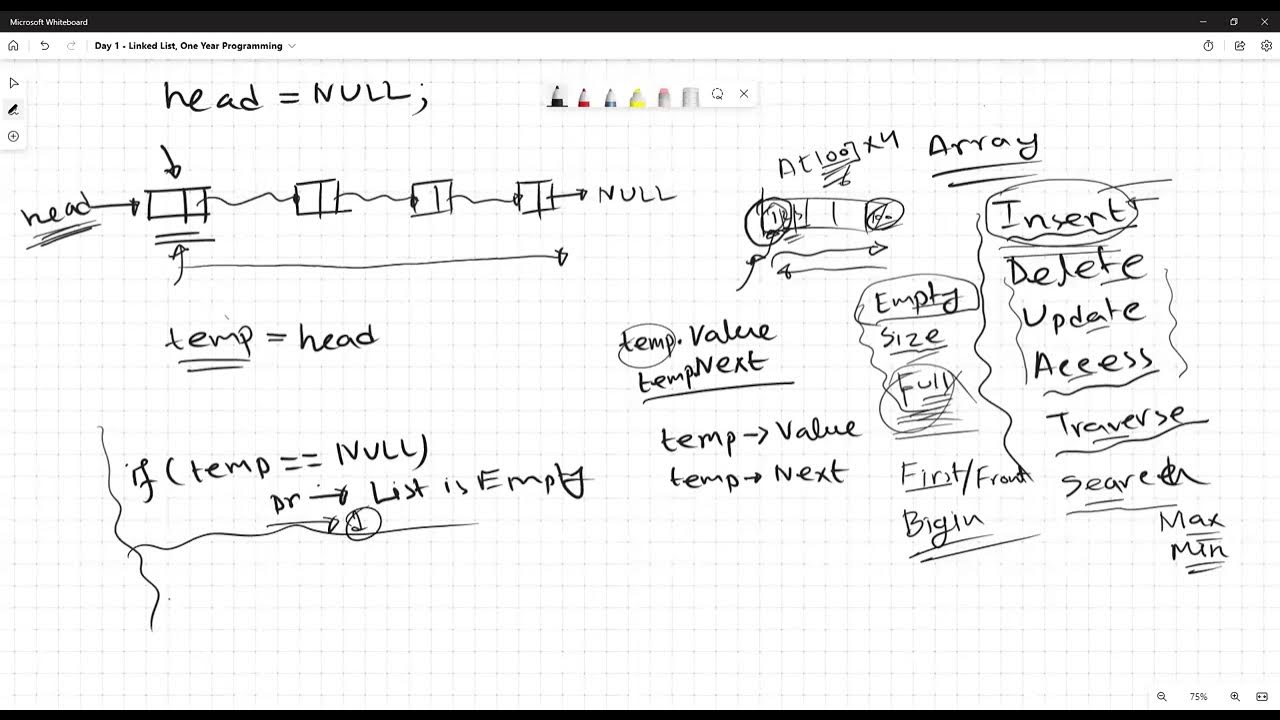 Microsoft Whiteboard
Day 1 - Linked List, One Year Programming
head = NULL;
head
NULL
temp = head
if (temp == NULL)
List is Empty
1
temp.Value
tempNext
temp→Value
temp→Next
Array
Empty
Size
Full
First/Front
Bigin
Insert
Delete
Update
Access
Traverse
Search
Max
Min
75%